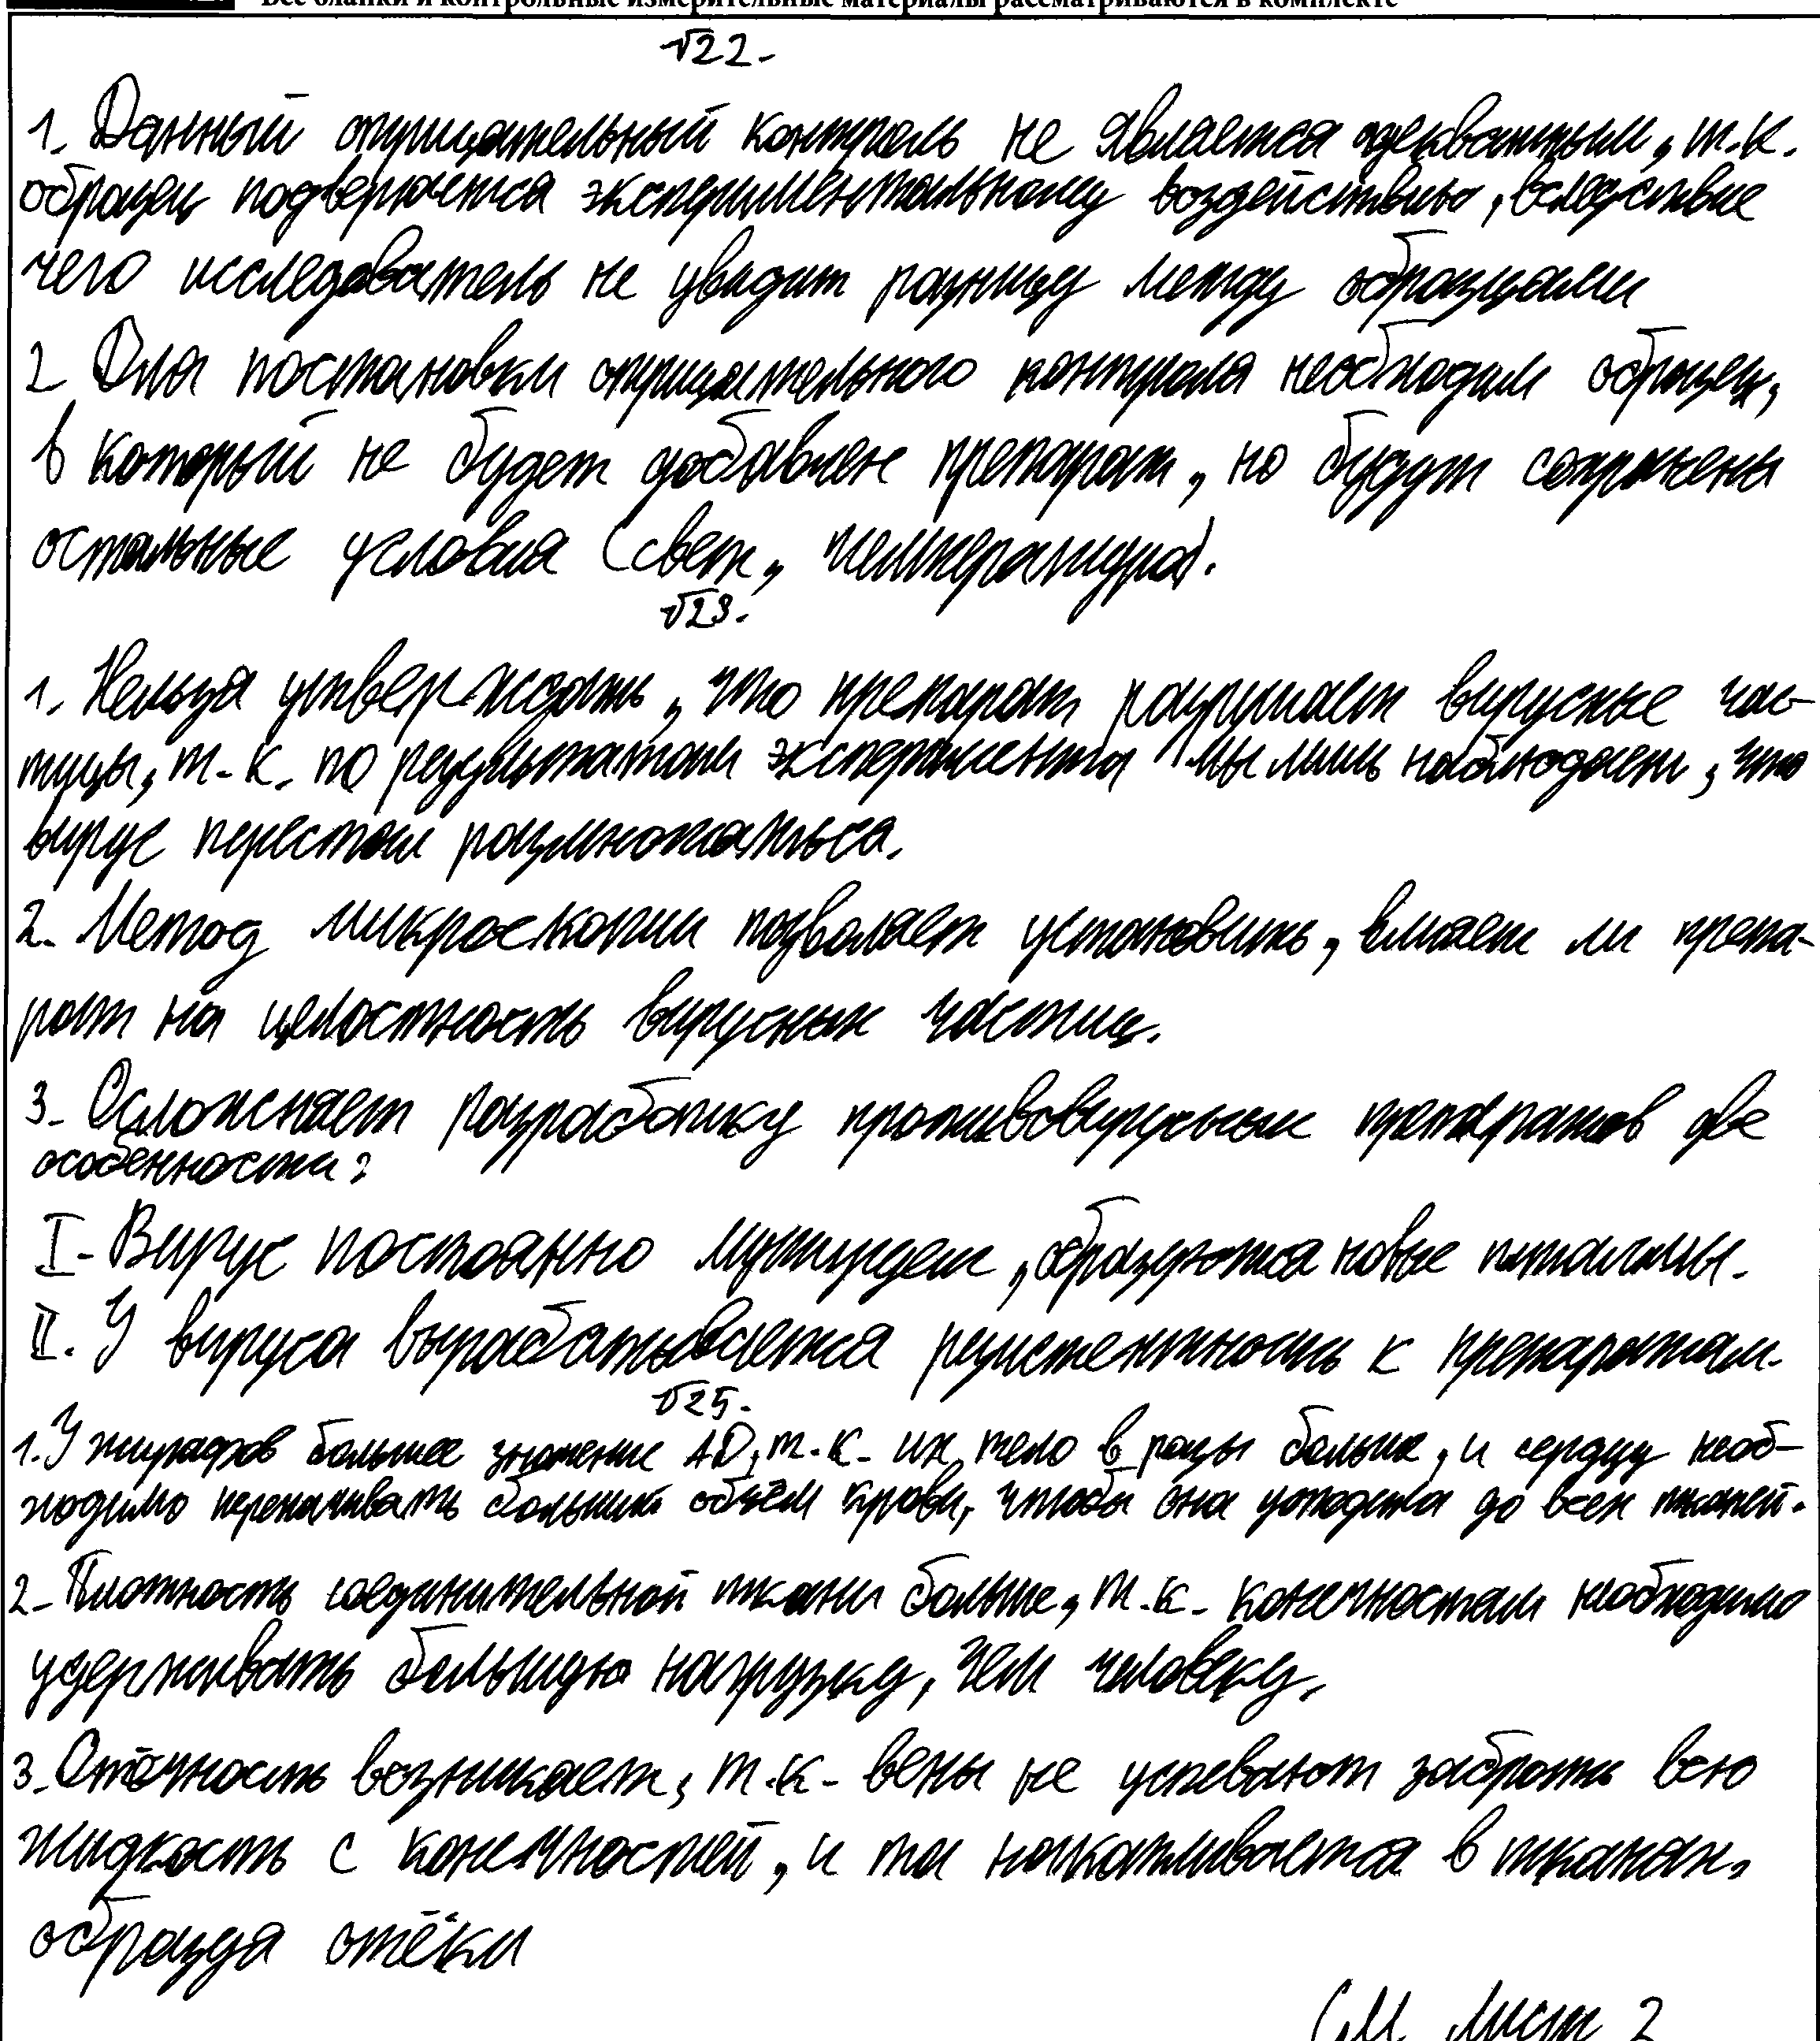 Все бланки и контрольные измерительные материалы рассматриваются в комплекте
№22.
1. Данный отрицательный контроль не является адекватным, т.к.
образец подвергается экспериментальному воздействию, вследствие
чего исследователь не увидит разницу между образцами
2 Для постановки отрицательного контроля необходим образец,
в который не будет добавлен препарат, но будут сохранены
остальные условия (свет, температура).
№23.
1. Нельзя утверждать, что препарат разрушает вирусные час-
тицы, т.к. по результатам эксперимента мы лишь наблюдаем, что
вирус перестал размножаться.
2. Метод микроскопии позволяет установить, влияет ли препа-
рат на целостность вирусных частиц.
3. Осложняет разработку противовирусных препаратов две
особенности:
I. Вирус постоянно мутирует, образуются новые штаммы.
II. У вируса вырабатывается резистентность к препаратам.
№25.
1. У жирафов большее значение АД, т.к. их тело в разы больше, и сердцу необ-
ходимо перекачивать больший объём крови, чтобы она доходила до всех тканей.
2. Плотность соединительной ткани больше, т.к. конечностям необходимо
удерживать большую нагрузку, чем человеку.
3. Отёчность возникает, т.к. вены не успевают забрать всю
жидкость с конечностей, и та накапливается в тканях,
образуя отёки
См. лист 2